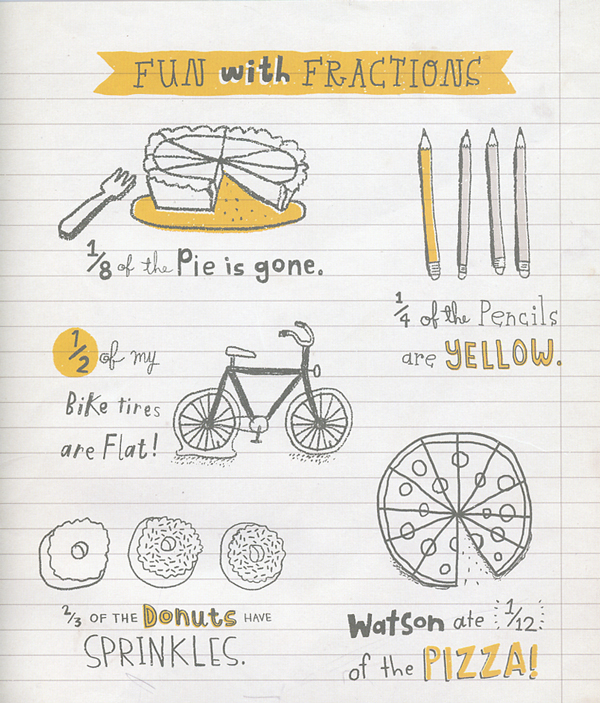 FUN with FRACTIONS
1/8 of the Pie is gone.
1/4 of the Pencils
are YELLOW.
1/2 of my
Bike tires
are Flat!
2/3 OF THE Donuts HAVE
SPRINKLES.
Watson ate 1/12
of the PIZZA!